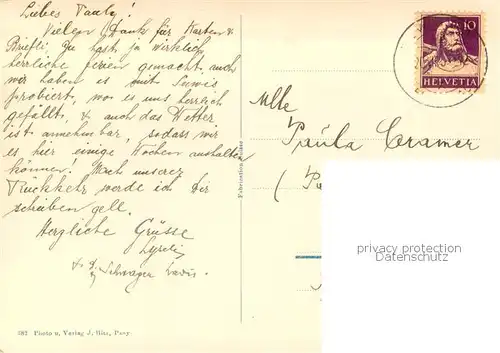 Liebes Pauly!
Vielen Dank für Karten &
Briefli. Du hast ja wirklich
herrliche Ferien gemacht, auch
wir haben es mit
probiert, wo es uns herrlich
gefällt, & auch das Wetter
ist annehmbar, sodass wir
es hier einige Wochen aushalten
können! Nach unserer
Rückkehr werde ich Dir
schreiben gell.
Herzliche Grüsse
Schwager
382 Photo u. Verlag J. Pany
Fabrication Suisse
10
HELVETIA
Mlle
Paula Cramer
privacy protection
watermark